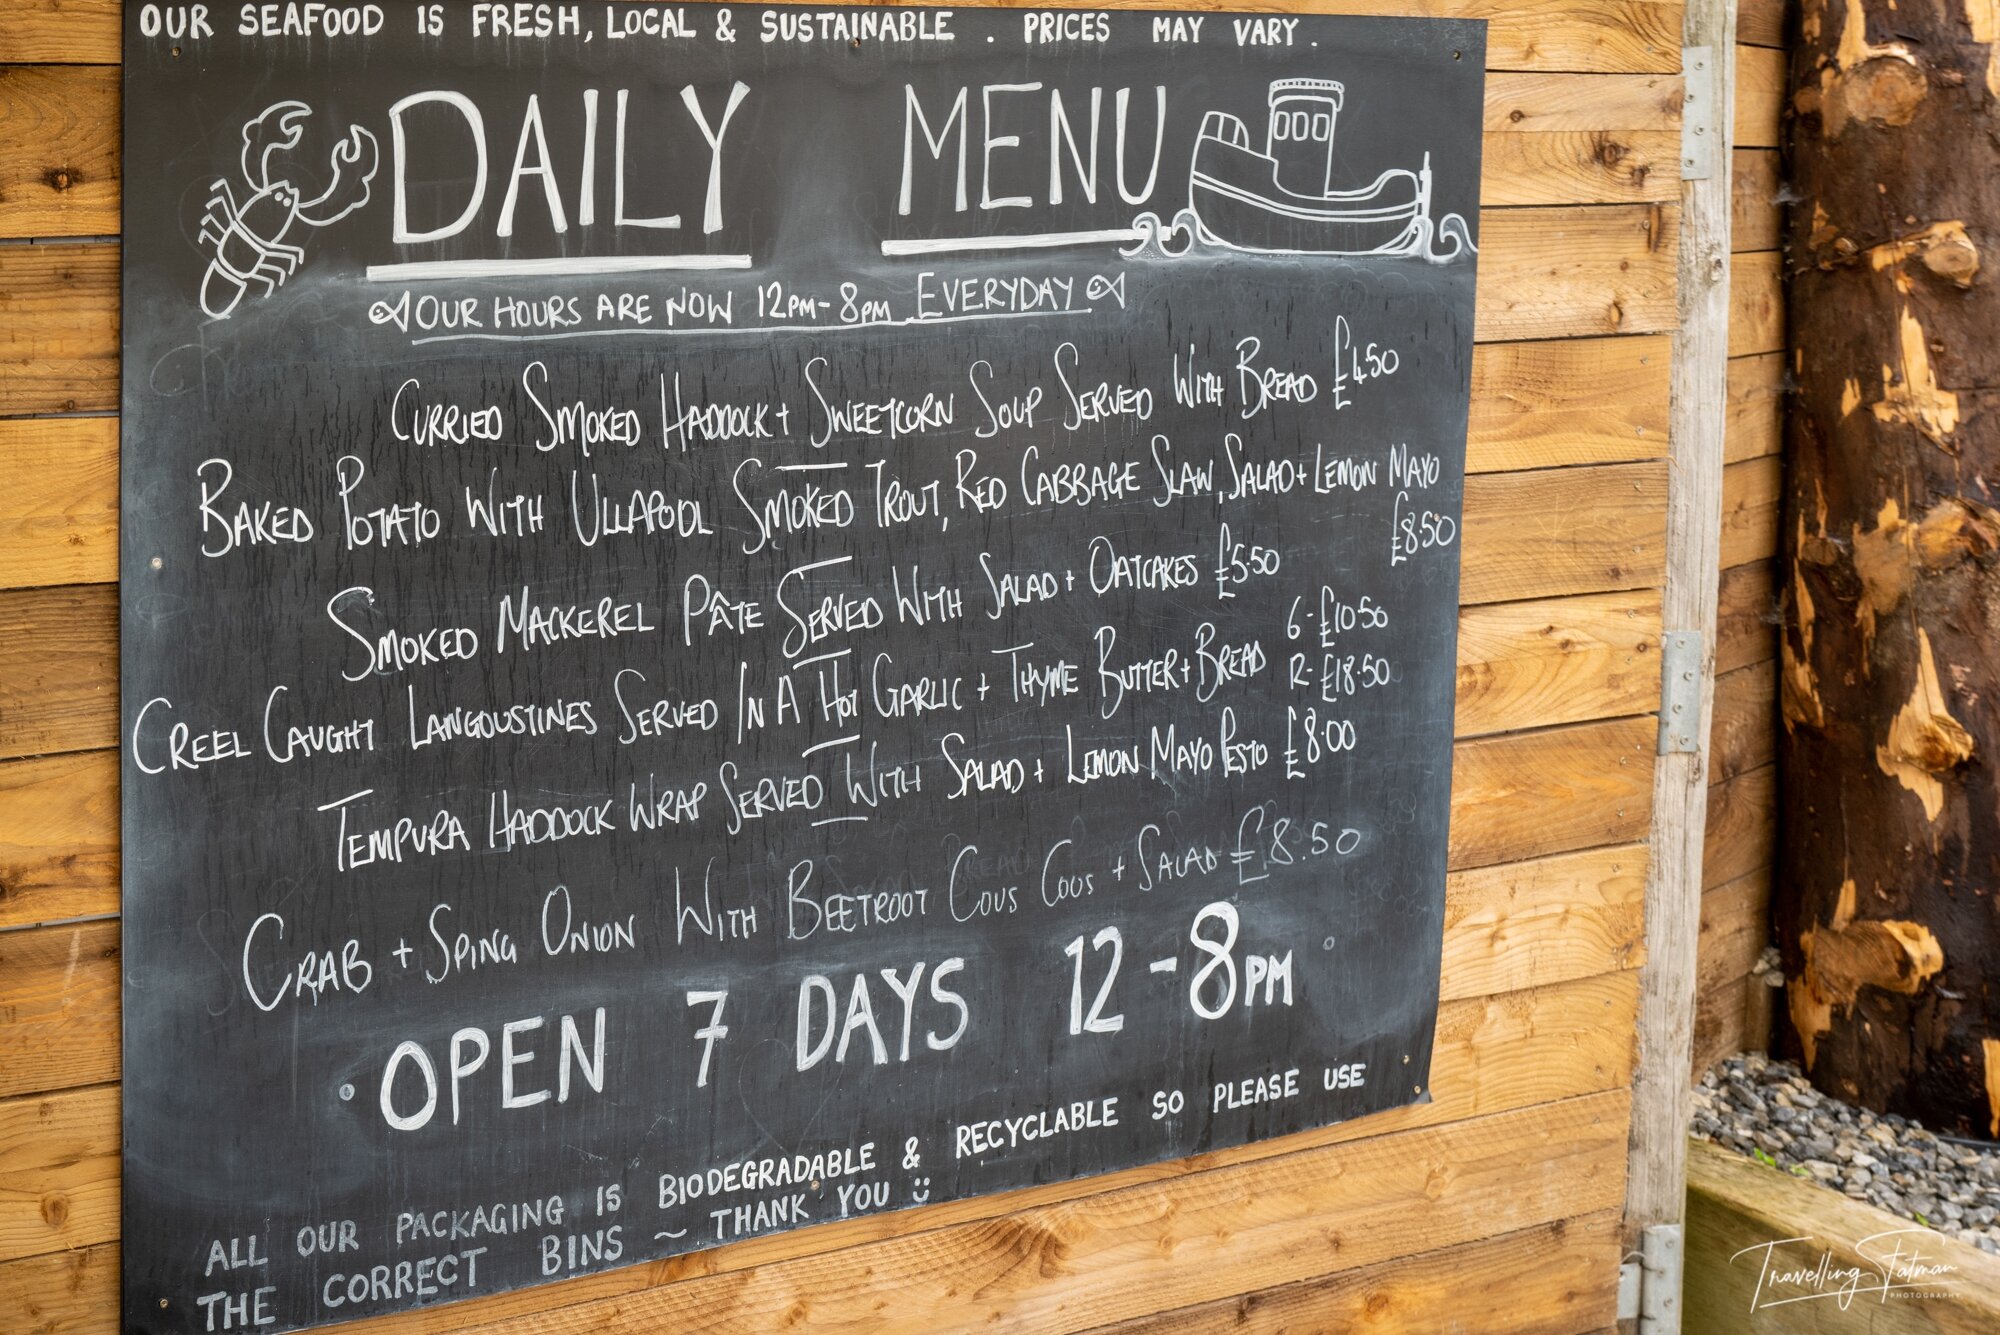 OUR SEAFOOD IS FRESH, LOCAL & SUSTAINABLE . PRICES MAY VARY.
DAILY MENU
OUR HOURS ARE NOW 12PM-8PM EVERYDAY
CURRIED SMOKED HADDOCK + SWEETCORN SOUP SERVED WITH BREAD £4.50
BAKED POTATO WITH ULLAPOOL SMOKED TROUT, RED CABBAGE SLAW, SALAD + LEMON MAYO
£8.50
SMOKED MACKEREL PÂTE SERVED WITH SALAD + OATCAKES £5.50
6-£10.50
CREEL CAUGHT LANGOUSTINES SERVED IN A HOT GARLIC + THYME BUTTER + BREAD
12-£18.50
TEMPURA HADDOCK WRAP SERVED WITH SALAD + LEMON MAYO PESTO £8.00
CRAB + SPING ONION WITH BEETROOT COUS COUS + SALAD £8.50
OPEN 7 DAYS 12-8PM
ALL OUR PACKAGING IS BIODEGRADABLE & RECYCLABLE SO PLEASE USE
THE CORRECT BINS ~ THANK YOU
Travelling Fatman
PHOTOGRAPHY